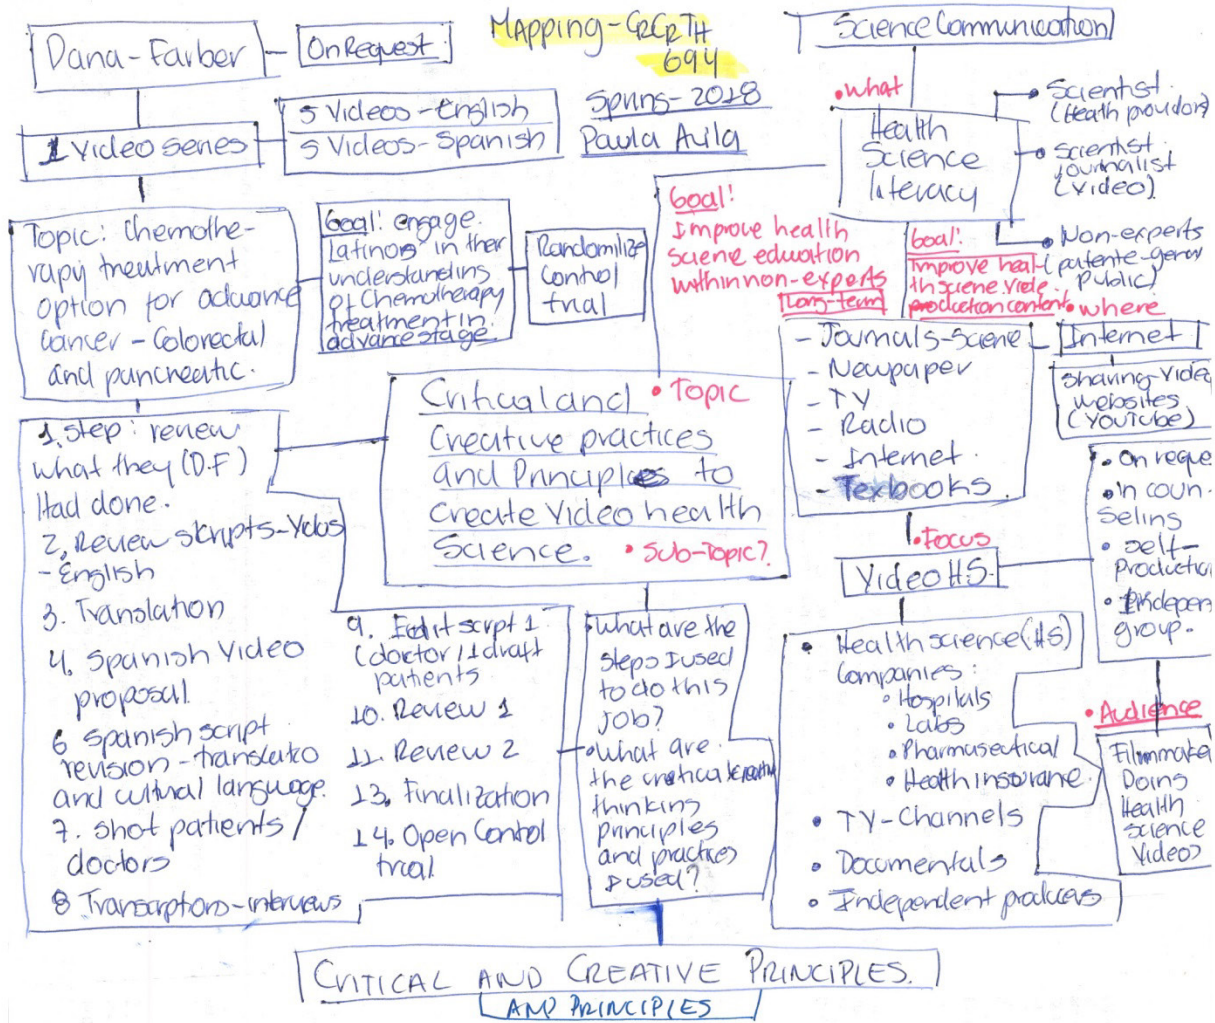 Mapping-CRCRTH
694
Spring-2018
Paula Avila
Dana-Farber
On Request
1 Video series
5 Videos-English
5 Videos-Spanish
Topic: Chemothe-
rapy treatment
option for advance
Cancer-Colorectal
and pancreatic.
Goal! engage.
Latinos in ther
understanding
of Chemotherapy
treatment in
advance stage.
Randomilize
control
trial
1. Step: review
what they (D.F)
Had done.
2. Review skripts-Vidos
- English
3. Translation
4. Spanish Video
proposal
6 Spanish script
revision-translatio
and cultural language.
7. shot patients/
doctors
8 Transcriptions-interviews
9. Edit script 1
(doctor/1 draft
patients
10. Review 1
11. Review 2
13. Finalization
14. Open Control
trial
Critical and
• Topic
Creative practices
and Principles to
create Video health
Science.
• Sub-Topic?
• What are the
steps I used
to do this
job?
• What are
the critical creative
thinking
principles
and practices
I used?
CRITICAL AND CREATIVE PRINCIPLES.
AND PRINCIPLES
Science Communication
• what
Health
Science
literacy
• Scientist
(Heath providors)
• Scientist
journalist
(Video)
• Non-experts
(patients-general
public)
Goal!
Improve health
sciene education
within non-experts
Long-term
Goal!
Improve heal-
th sciene vide
production content
• where
- Journals-Sciene
- Newpaper
- TV
- Radio
- Internet.
- Texbooks
Internet
Sharing-Video
websites
(YOUTUBE)
• Focus
Video H.S.
• On reque
• in coun-
seling
• self-
Productio
• Indepen
group.
• Health science (HS)
Companies:
• Hospitals
• Labs
• Pharmaseutical
• Health insurane.
• TV-Channels
• Documentals
• Independent producers
• Audience
Filmmaker
Doing
Health
science
Videos